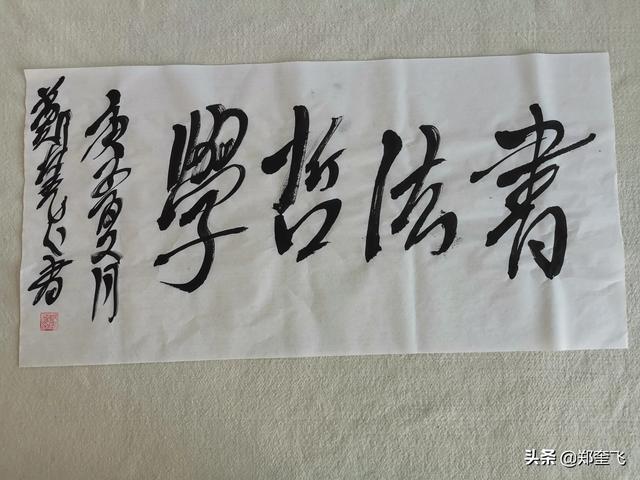 書法哲學
庚子夏月
鄭楚人書
头条 @郑奎飞